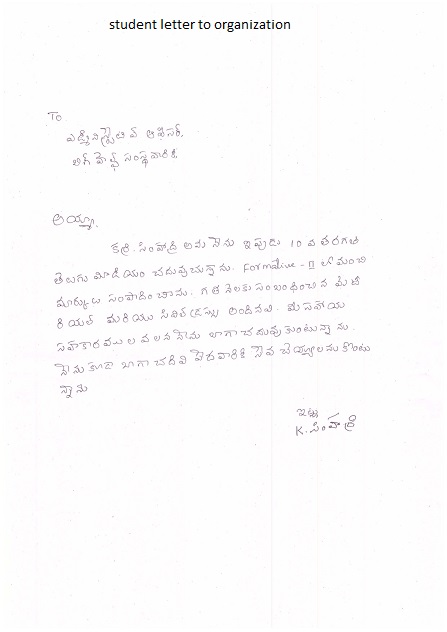 student letter to organization
To
ఎడ్మినిస్ట్రేటివ్ ఆఫీసర్,
బిగ్ హెల్ప్ సంస్థవారికి
అయ్యా,
కర్రి. సింహాద్రి అను నేను ఇపుడు 10 వ తరగతి
తెలుగు మీడియం చదువుచున్నాను. Formative - II లో మంచి
మార్కులు సంపాదించాను. గత నెలకు సంబంధించిన మెటీ
రియల్ మరియు సివిల్ డ్రస్సు అందినవి. మీ సహాయ
సహకారముల వలన నేను బాగా చదువుకుంటున్నాను.
నేను కూడా బాగా చదివి పేదవారికి సేవ చెయ్యాలనుకొంటు
న్నాను
ఇట్లు
K. సింహాద్రి